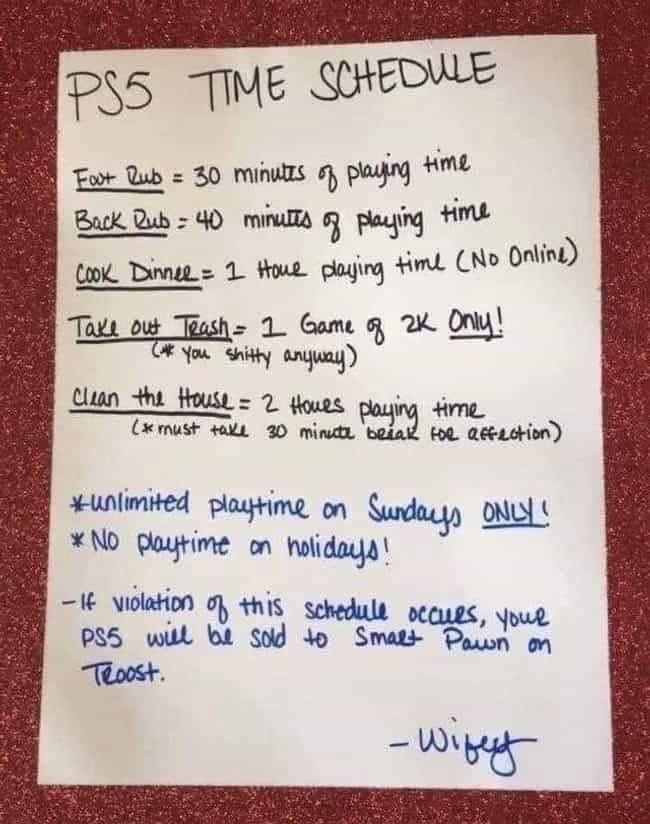 PS5 TIME SCHEDULE
Foot Rub = 30 minutes of playing time
Back Rub = 40 minutes of playing time
Cook Dinner = 1 Hour playing time (No Online)
Take out Trash = 1 Game of 2K Only!
(* You shitty anyway)
Clean the House = 2 Hours playing time
(* must take 30 minute break for affection)
*unlimited playtime on Sundays ONLY!
* No playtime on holidays!
- If violation of this schedule occurs, your
PS5 will be sold to Smart Pawn on
Troost.
- Wifey